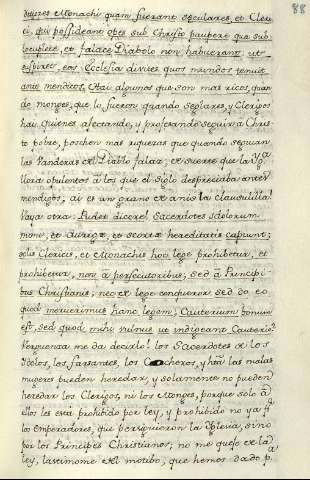 88
ditiores Monachi quam fuerant seculares, et Cleri
ci, qui possideant opes sub Christo paupere quas sub
locuplete, et falace Diabolo non habuerant: ut
suspiret eos Ecclesia divites quos mundus tenuit
ante mendicos. Hai algunos que son mas ricos, quan
do monges, que lo fueron quando seglares, y Clerigos
hai quienes afectando, y profesando seguir a Chris
to pobre, poschen mas riquezas que quando seguian
las Vanderas del Diablo falaz, de suerte que la Yga
llora opulentos a los que el siglo despreciaba antes
mendigos, ai es un grano de anis la clausulilla!
Vaya otra: Pudet dicere! Sacerdotes Idolorum,
mimi, et aurigæ, et scorta hereditatis capiunt;
solis Clericis, et Monachis hoc lege prohibetur, et
prohibetur, non a persecutoribus, sed a Principi
bus Christianis; nec de lege conqueror sed do eo
quod meruerimus hanc legem; Cauterium bonum
est, sed quod mihi vulnus ut indigeam Cauterio?
Verguenza me da decirlo! los Sacerdotes de los
Idolos, los farsantes, los Cocheros, y hta las malas
mugeres pueden heredar, y solamente no pueden
heredar los Clerigos, ni los Monges, porque solo a
ellos les está prohibido por ley, y prohibido no ya pr
los Emperadores, que persiguieron la Yglesia, sino
por los Principes Christianos; no me quejo de la
ley, lastimome del motibo, que hemos dado pa